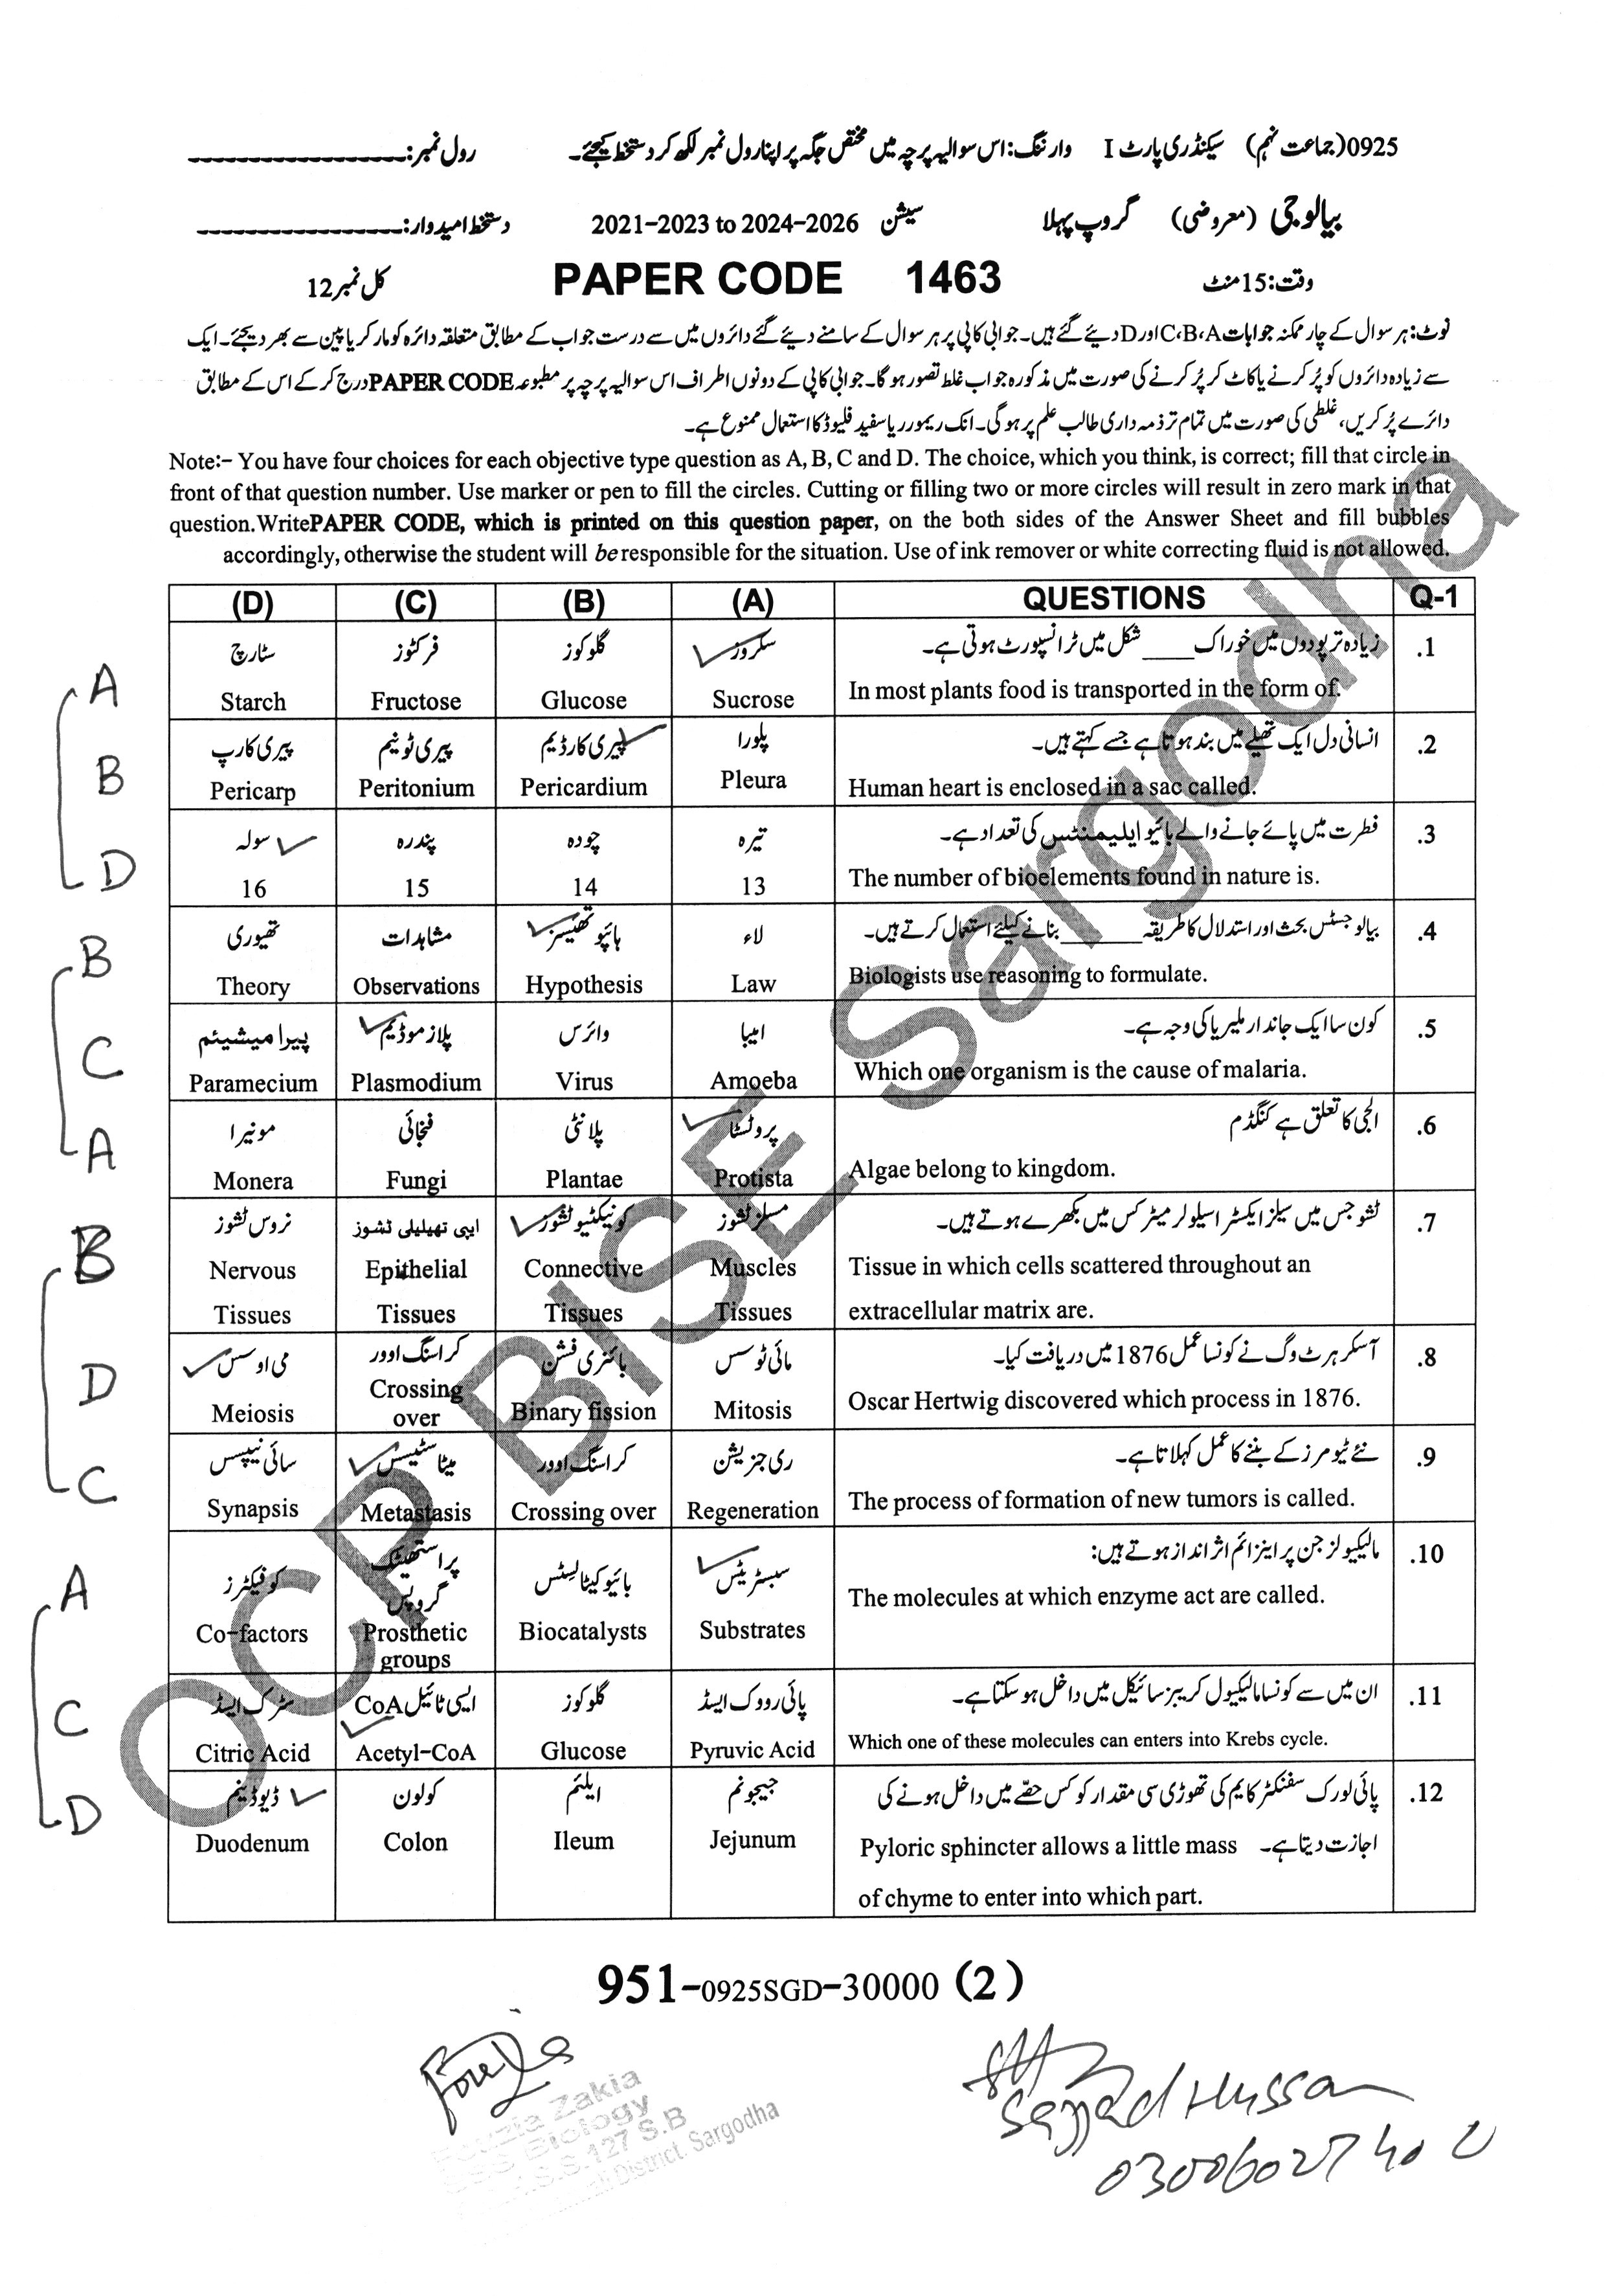 0925(جماعت نہم) سیکنڈری پارٹ I وارننگ: اس سوالیہ پرچہ میں مختص جگہ پر اپنا رول نمبر لکھ کر دستخط کیجئے۔ رول نمبر:
بیالوجی (معروضی) گروپ پہلا سیشن 2021-2023 to 2024-2026 دستخط امیدوار:
وقت: 15 منٹ PAPER CODE 1463 کل نمبر 12
نوٹ: ہر سوال کے چار ممکنہ جوابات C،B،A اور D دیئے گئے ہیں۔ جوابی کاپی پر ہر سوال کے سامنے دیئے گئے دائروں میں سے درست جواب کے مطابق متعلقہ دائرہ کو مارکر یا پین سے بھر دیجئے۔ ایک
سے زیادہ دائروں کو پُر کرنے یا کاٹ کر پُر کرنے کی صورت میں مذکورہ جواب غلط تصور ہو گا۔ جوابی کاپی کے دونوں اطراف اس سوالیہ پرچہ پر مطبوعہ PAPER CODE درج کر کے اس کے مطابق
دائرے پُر کریں، غلطی کی صورت میں تمام تر ذمہ داری طالب علم پر ہو گی۔ انک ریمور ریا سفید فلیوڈ کا استعمال ممنوع ہے۔
Note:- You have four choices for each objective type question as A, B, C and D. The choice, which you think, is correct; fill that circle in
front of that question number. Use marker or pen to fill the circles. Cutting or filling two or more circles will result in zero mark in that
question.WritePAPER CODE, which is printed on this question paper, on the both sides of the Answer Sheet and fill bubbles
accordingly, otherwise the student will be responsible for the situation. Use of ink remover or white correcting fluid is not allowed.
(D) (C) (B) (A) QUESTIONS Q-1
سٹارچ فرکٹوز گلوکوز سکروز زیادہ تر پودوں میں خوراک ____ شکل میں ٹرانسپورٹ ہوتی ہے۔ .1
A Starch Fructose Glucose Sucrose In most plants food is transported in the form of.
پیری کارپ پیری ٹونیم پیری کارڈیم پلورا انسانی دل ایک تھیلے میں بند ہوتا ہے جسے کہتے ہیں۔ .2
B Pericarp Peritonium Pericardium Pleura Human heart is enclosed in a sac called.
سولہ پندرہ چودہ تیرہ فطرت میں پائے جانے والے بائیو ایلیمنٹس کی تعداد ہے۔ .3
D 16 15 14 13 The number of bioelements found in nature is.
تھیوری مشاہدات ہائپوتھیسز لاء بیالوجسٹس بحث اور استدلال کا طریقہ ______ بنانے کیلئے استعمال کرتے ہیں۔ .4
B Theory Observations Hypothesis Law Biologists use reasoning to formulate.
پیرامیشیئم پلازموڈیم وائرس امیبا کون سا ایک جاندار ملیریا کی وجہ ہے۔ .5
C Paramecium Plasmodium Virus Amoeba Which one organism is the cause of malaria.
مونیرا فنجائی پلانٹی پروٹسٹا الجی کا تعلق ہے کنگڈم .6
A Monera Fungi Plantae Protista Algae belong to kingdom.
نروس ٹشوز ایپی تھیلیلی ٹشوز کونیکٹیو ٹشوز مسلز ٹشوز ٹشو جس میں سیلز ایکسٹرا سیلولر میٹرکس میں بکھرے ہوتے ہیں۔ .7
B Nervous Epithelial Connective Muscles Tissue in which cells scattered throughout an
Tissues Tissues Tissues Tissues extracellular matrix are.
می اوسس کراسنگ اوور بائنری فشن مائی ٹوسس آسکر ہرٹ وگ نے کونسا عمل 1876 میں دریافت کیا۔ .8
D Meiosis Crossing over Binary fission Mitosis Oscar Hertwig discovered which process in 1876.
سائی نیپسس میٹا سٹیسس کراسنگ اوور ری جنریشن نئے ٹیومرز کے بننے کا عمل کہلاتا ہے۔ .9
C Synapsis Metastasis Crossing over Regeneration The process of formation of new tumors is called.
کو فیکٹرز پراستھیٹک گروپس بائیو کیٹالسٹس سبسٹریٹس مالیکیولز جن پر اینزائم اثر انداز ہوتے ہیں: .10
A Co-factors Prosthetic groups Biocatalysts Substrates The molecules at which enzyme act are called.
سٹرک ایسڈ ایسی ٹائیل CoA گلوکوز پائی رووک ایسڈ ان میں سے کونسا مالیکیول کریبز سائیکل میں داخل ہو سکتا ہے۔ .11
C Citric Acid Acetyl-CoA Glucose Pyruvic Acid Which one of these molecules can enters into Krebs cycle.
ڈیوڈینم کولون ایلیئم جیجونم پائی لورک سفنکٹر کایم کی تھوڑی سی مقدار کو کس حصّے میں داخل ہونے کی .12
D Duodenum Colon Ileum Jejunum Pyloric sphincter allows a little mass اجازت دیتا ہے۔
of chyme to enter into which part.
OCR BISE Sargodha
951-0925SGD-30000 (2)
Sajjad Hussan
Zakia
Biology
127 S.B
District. Sargodha